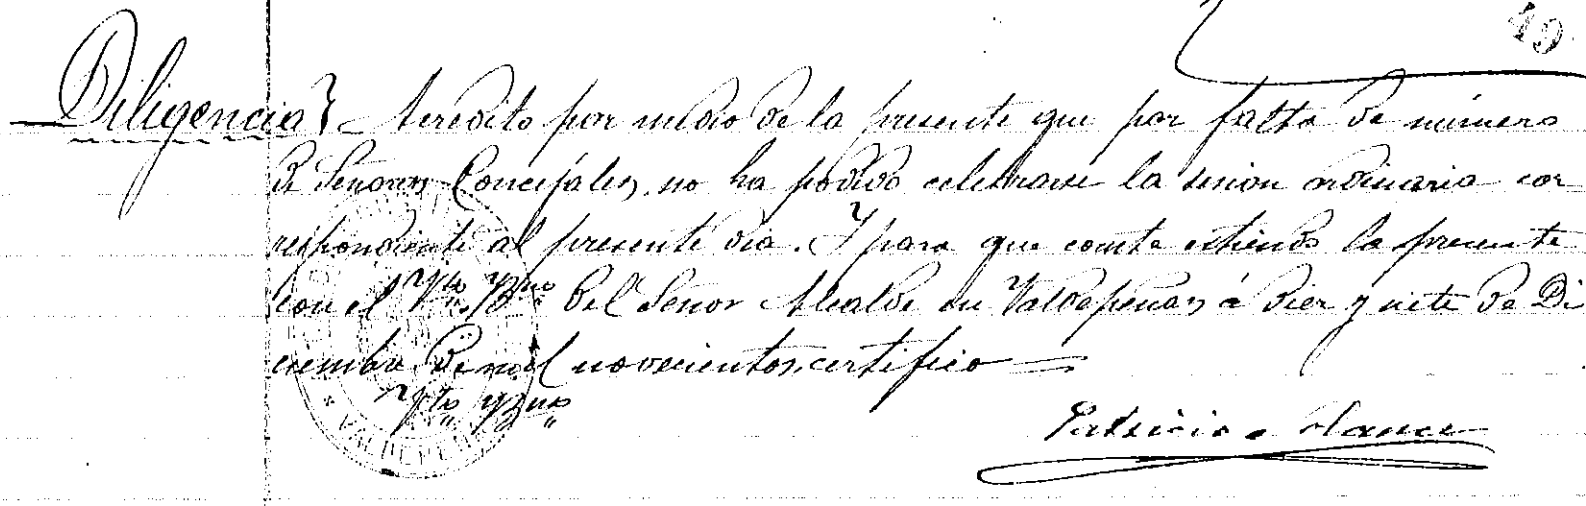 49
Diligencia} Acredito por medio de la presente que por falta de número
de Señores Concejales, no ha podido celebrarse la sesion ordinaria cor
respondiente al presente dia. Y para que conste estiendo la presente
con el Vto. Bno. del Señor Alcalde en Valdepeñas á diez y siete de Di
ciembre de mil novecientos, certifico
Vto Bno
Patricio
VALDEPEÑAS